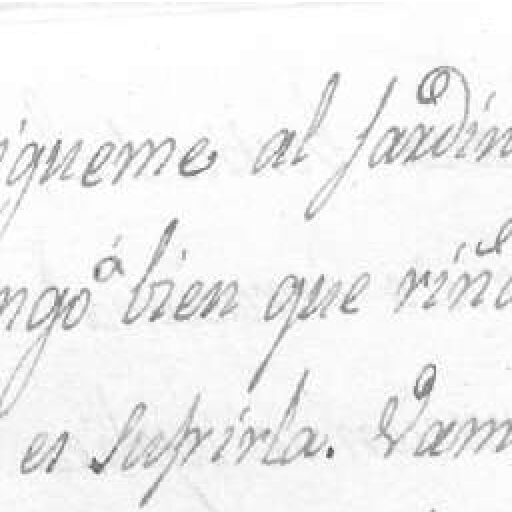 igueme al jardin
ngo á bien que riña
es sufrirla. Vam